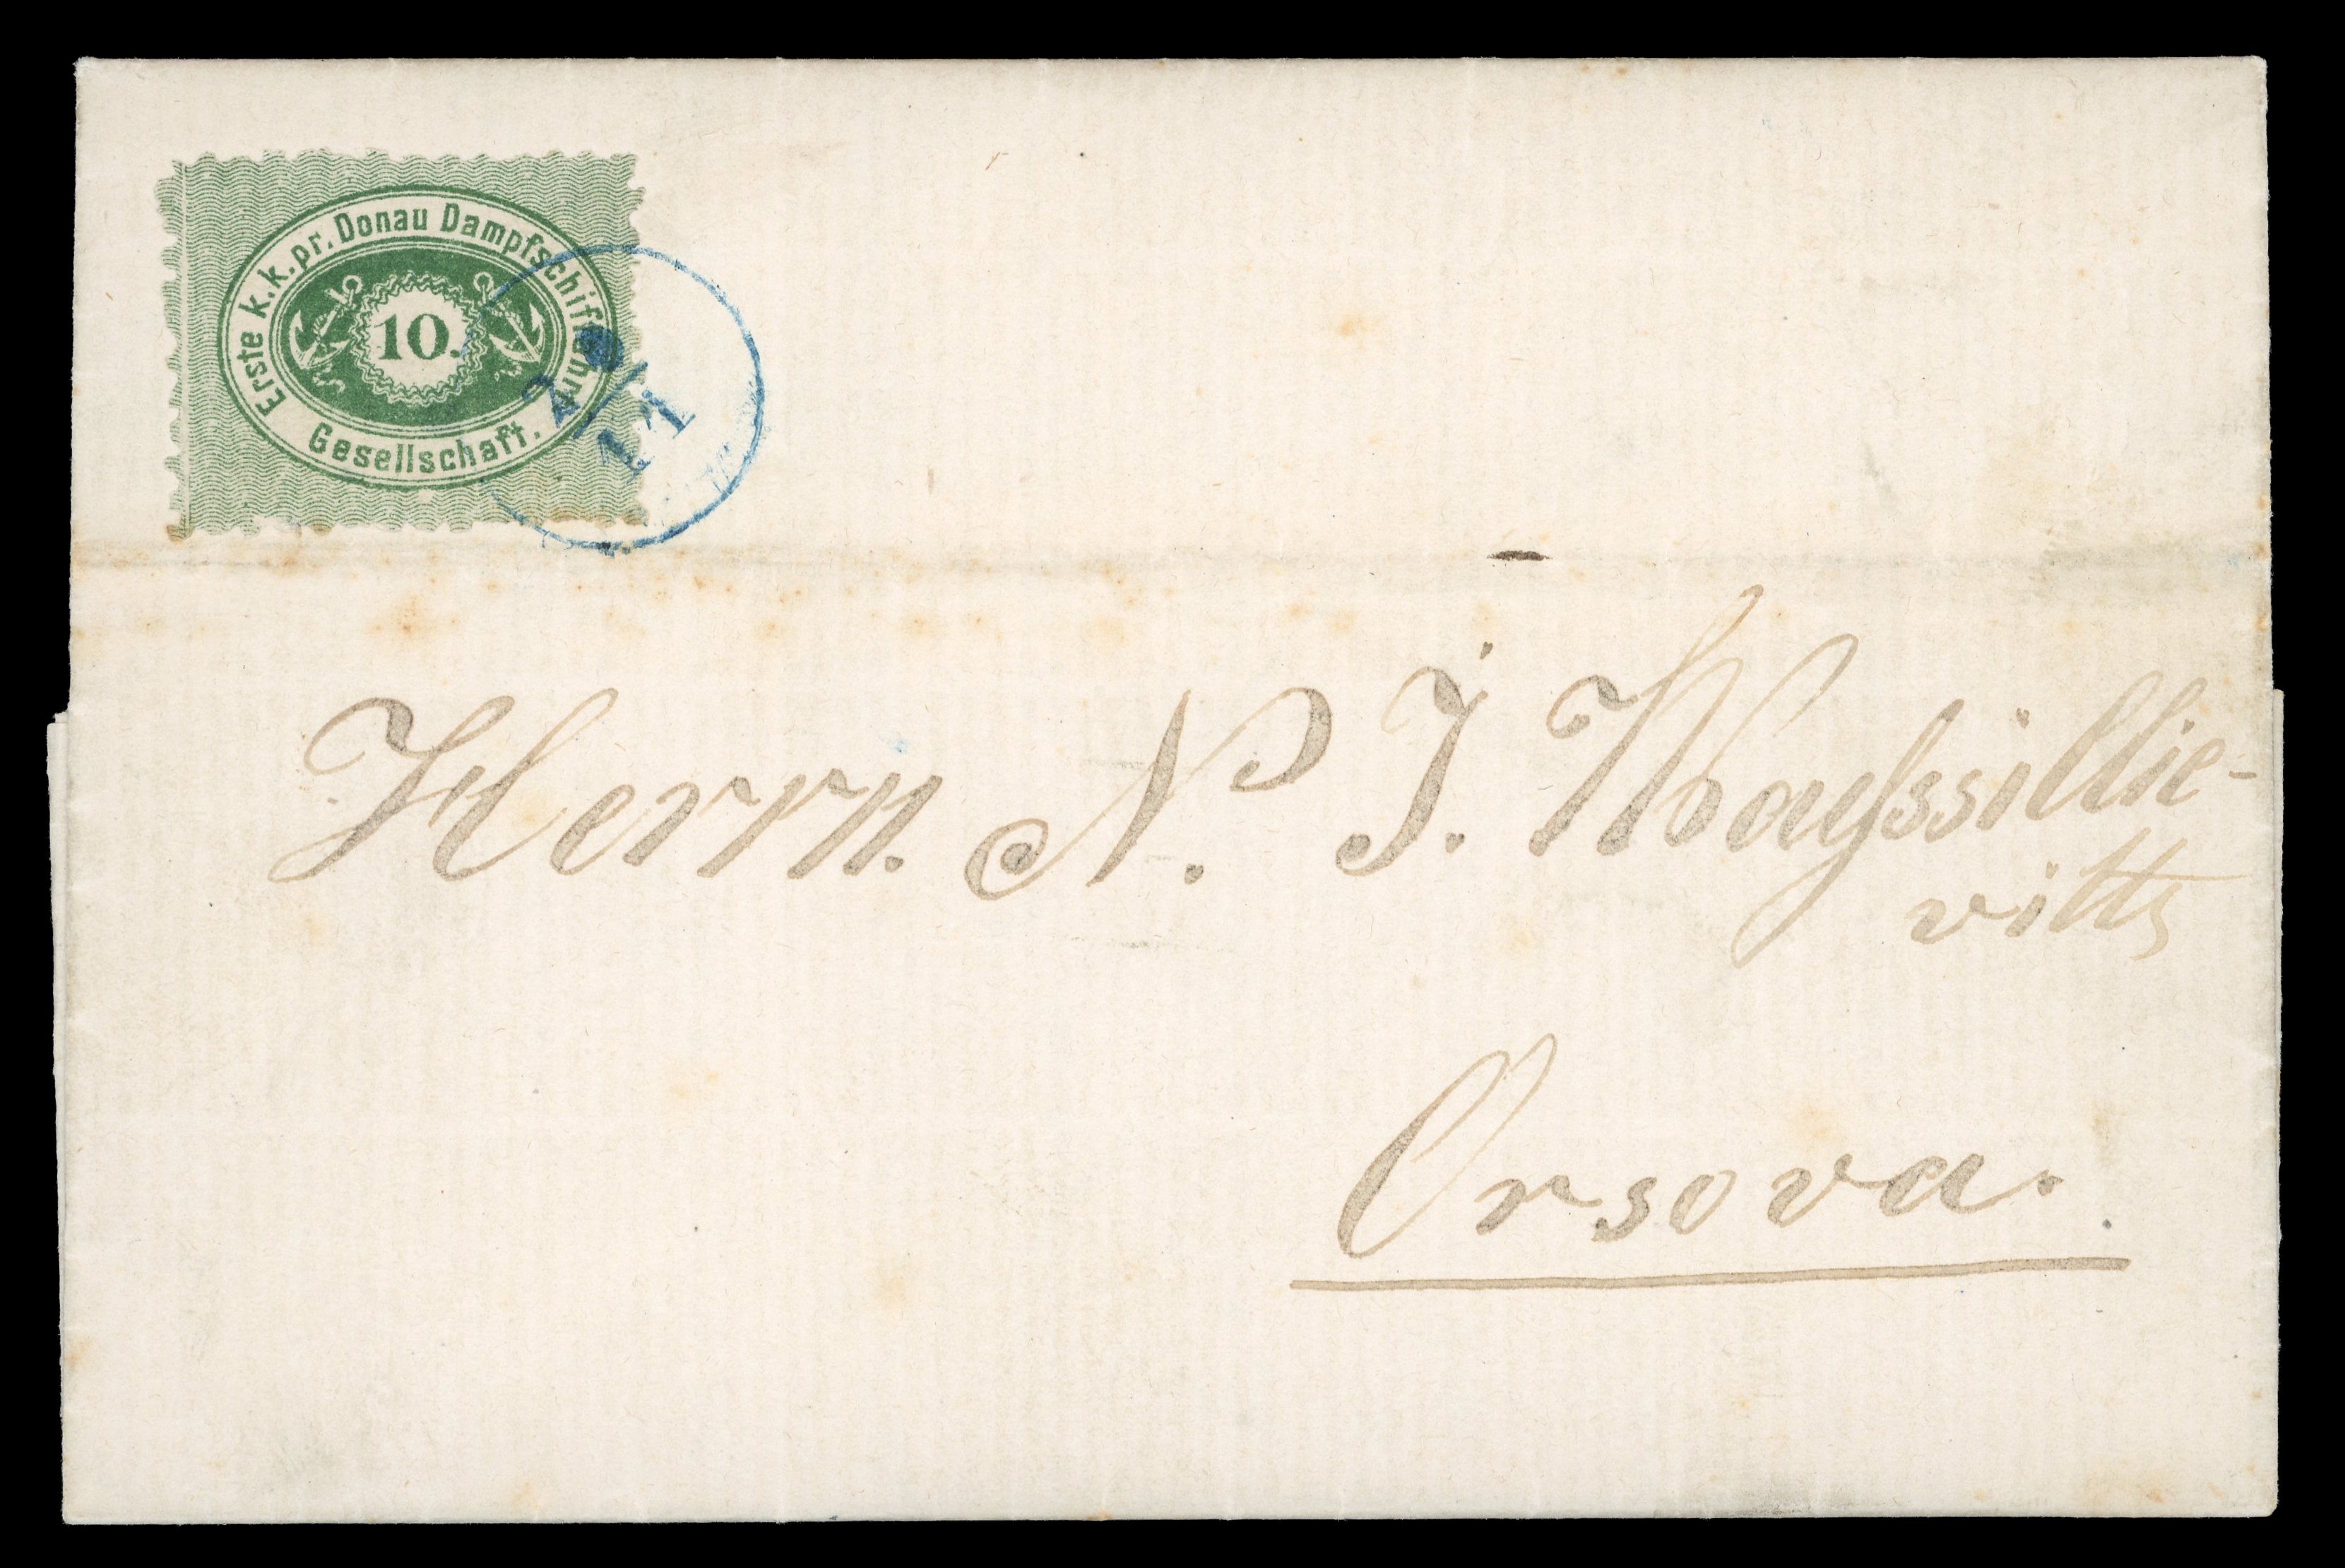 Erste k.k.pr. Donau Dampfschifffahrt
10.
Gesellschaft.
11
Herrn. N. J. Wayssillie-
vitts
Orsova.